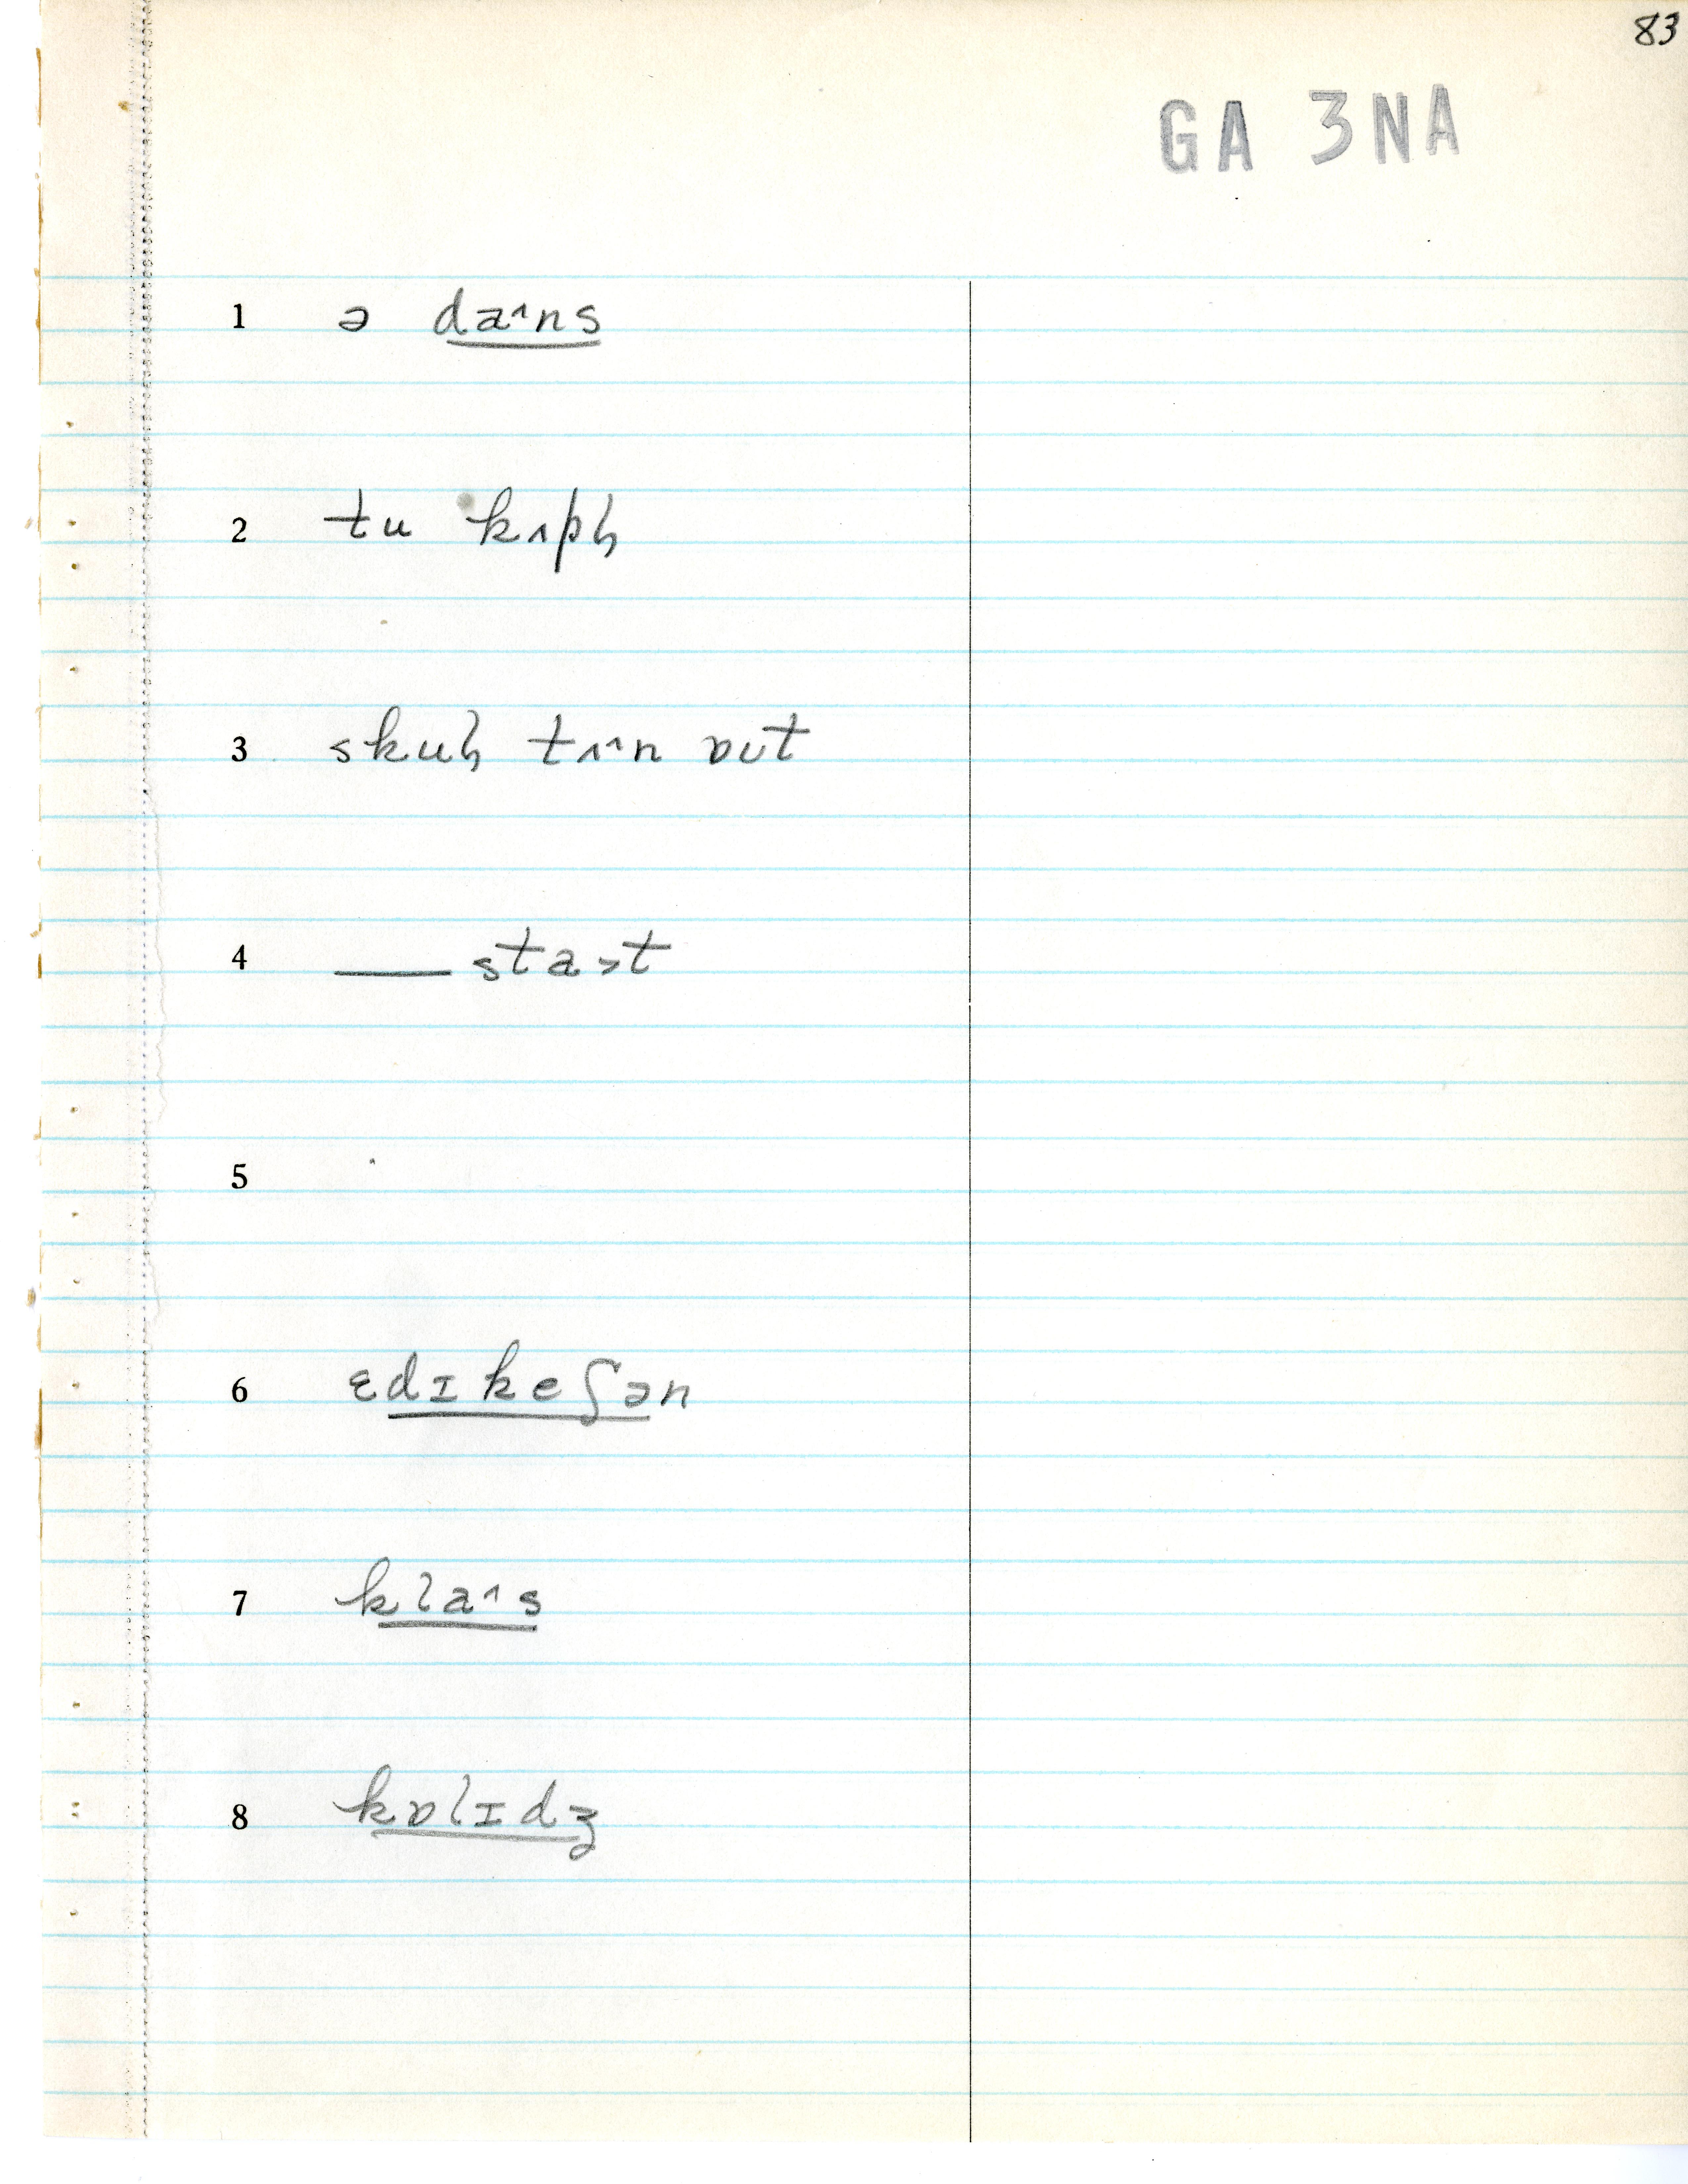 83
GA 3NA
1 ə da˄ns
2 tu kʌpl̩
3 skul̩ tʌ˄n ɒut
4 ___ sta˃t
5
6 ɛdɪkeʃən
7 kla˄s
8 kɒlɪdʒ